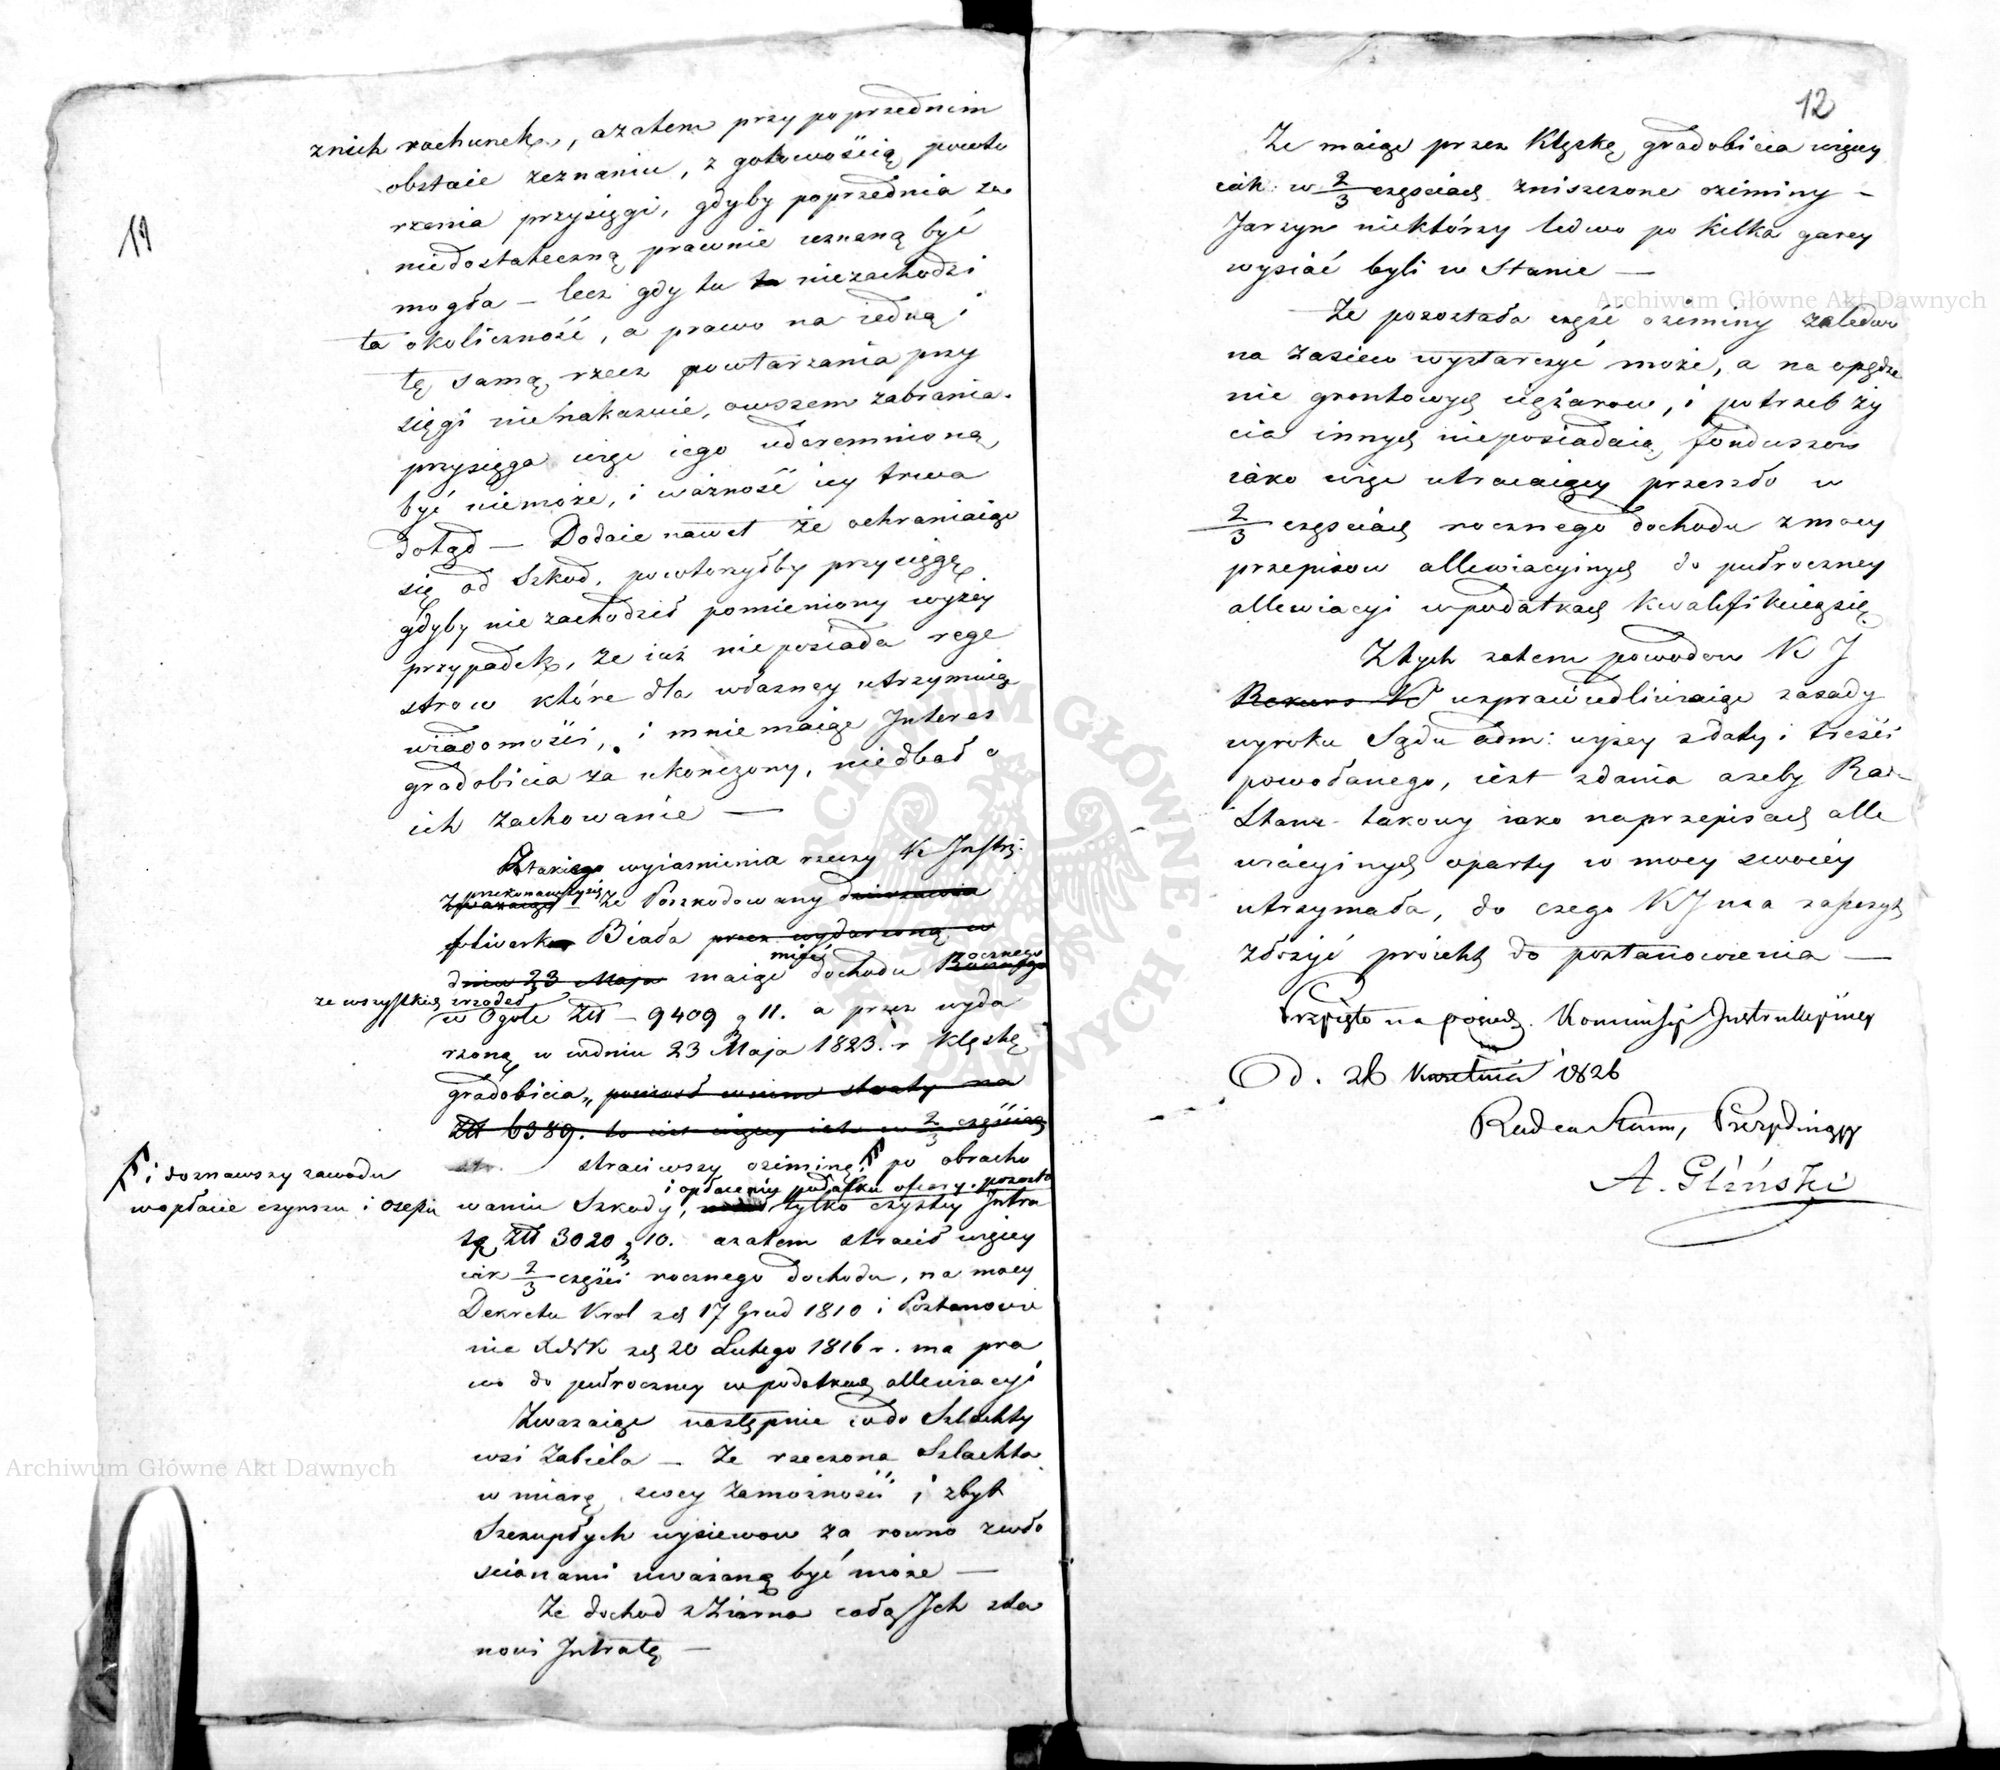 11
znich rachunek, azatem przy poprzednim
obstaie zeznaniu, z gotowością powto
rzenia przysięgi, gdyby poprzednia za
niedostateczną prawnie uznaną być
mogła — lecz gdy tu niezachodzi
ta okoliczność, a prawo na iedną i
tę samą rzecz powtarzania przy
sięgi nienakazuie, owszem zabrania.
przysięga więc iego udaremnioną
być niemoże, i ważność iey trwa
dotąd — Dodaie nawet że ochraniaiąc
się od Szkod, powtorzyłby przysięgę
gdyby nie zachodził pomieniony wyżey
przypadek, że iuż nieposiada rege
strow które dla własney utrzymuią
wiadomości, i mniemaiąc Interes
gradobicia za ukończony, niedbał o
ich zachowanie —
Z takiego wyiasnienia rzeczy K Instr:
przekonawszy się
Zważaiąc — że Poszkodowany dzierzawca
folwarku Biała przez wydarzoną w
dniu 23 Maja maiąc mieć dochodu Rocznego
ze wszystkich zrzodeł
w Ogole Złt — 9409 g 11. a przez wyda
rzoną w wdniu 23 Maja 1823. r klęskę
gradobicia, poniosł winien straty na
Złt 6389. to iest więcey iak w 2/3 częściach
straciwszy oziminę, po obracho
i doznawszy zawodu
wopłacie czynszu i Ozepu
i opłaceniu podatku ofiary. pozosta
waniu Szkody, tylko czystey Intra
tę Złt 3020 g 10. azatem stracił więcey
iak 2/3 części rocznego dochodu, na mocy
Dekretu Krol zd 17 Grud 1810 i Postanowie
nia XNK zd 20 Lutego 1816 r. ma pra
wo do pułroczney wpodatkach allewiacyi
Zwazaiąc następnie codo Szlachty
wsi Zabiela — Że rzeczona Szlachta
w miarę swey zamożności i zbyt
Szczupłych wysiewow za rowno zwło
scianami uważaną być może —
Że dochod z Ziarna całą Ich sta
nowi Intratę —
12
Że maiąc przez Klęskę gradobicia więcey
iak w 2/3 częściach zniszczone oziminy —
Jarzyn niektórzy ledwo po kilka garcy
wysiać byli w Stanie —
Że pozostała część oziminy zaledwo
na zasiew wystarczyć może, a na opędze
nie grontowych ciężarow, i potrzeb ży
cia innych nieposiadaią funduszow
iako więc utracaiący przeszło w
2/3 częściach rocznego dochodu z mocy
przepisow allewiacyinych do pułroczney
allewiacyi wpodatkach kwalifikuią się.
Ztych zatem powodow K J
Rekurs K uspraiwiedliwiaiąc zasady
wyroku Sądu adm: wyżey z daty i treści
powołanego, iest zdania azeby Rad-
Stanu takowy iako naprzepisach alle
wiacyinych oparty w mocy swoiey
utrzymała, do czego KJ ma zaszczyt
złożyć proiekt do postanowienia —
Przyięto na posiedz. Kommissyi Instrukcyiney
D. 26 Kwietnia 1826
Radca Stanu, Prezyduiący
A. Gliński
Archiwum Główne Akt Dawnych
Archiwum Główne Akt Dawnych
ARCHIWUM GŁÓWNE AKT DAWNYCH